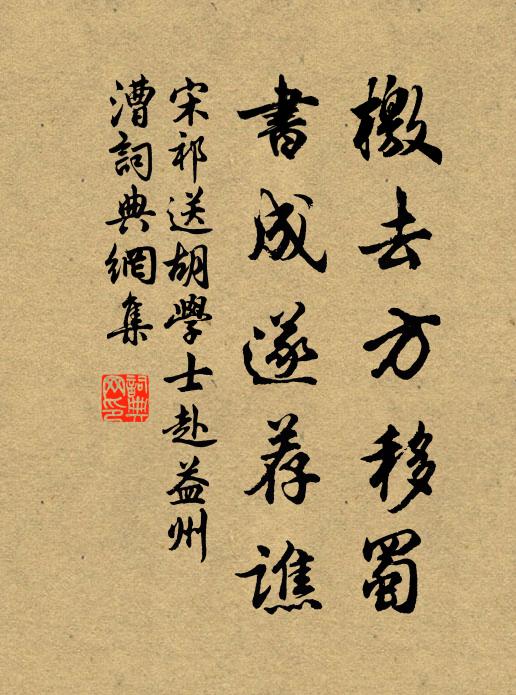 檄去方移蜀
書成遂荐譙
宋祁送胡學士赴益州
漕詞典網集
詞典網印